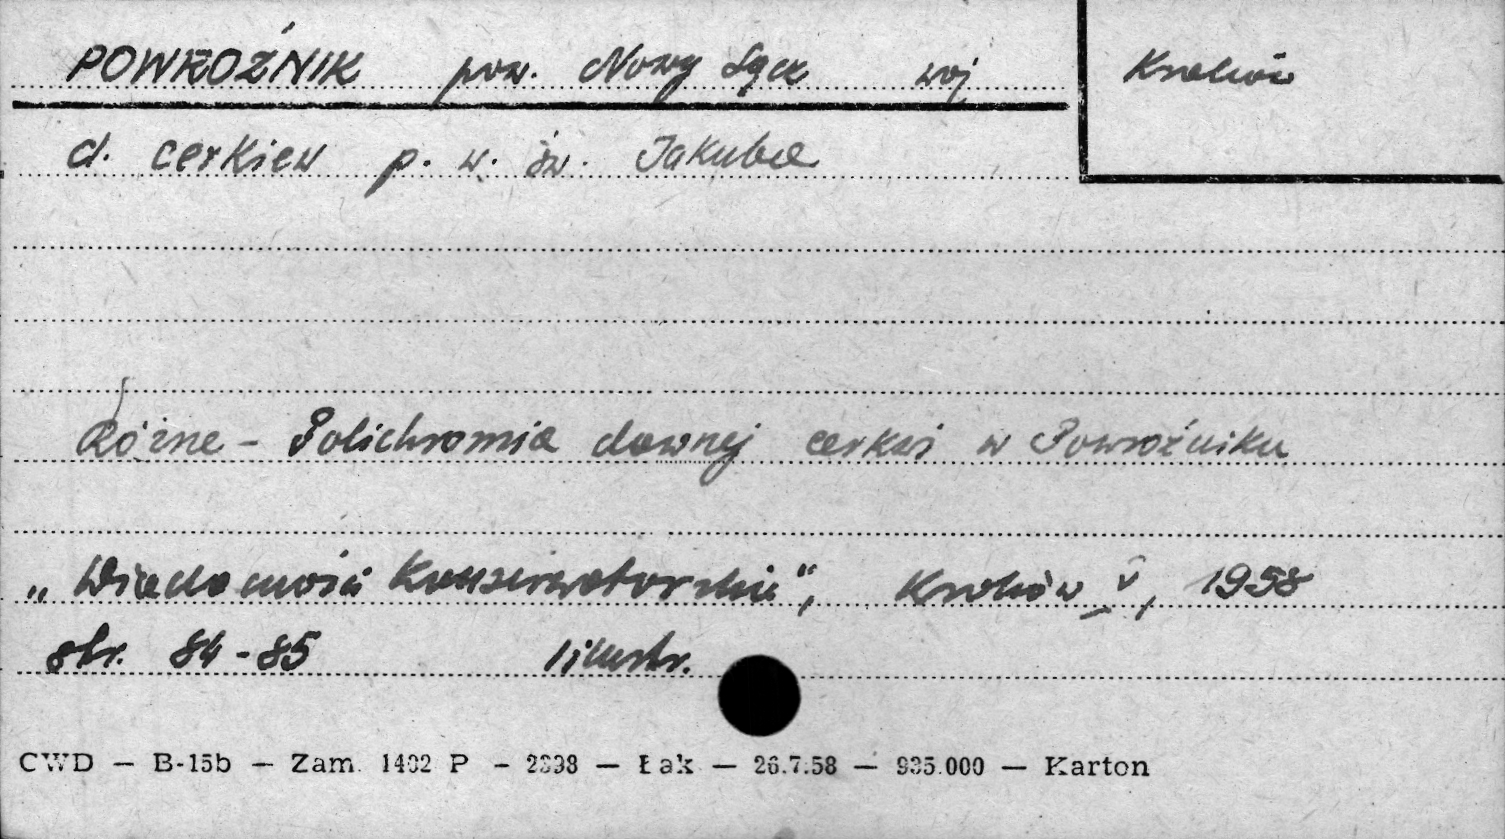 POWROŹNIK pow. Nowy Sącz woj Kraków
d. cerkiew p. w. św. Jakuba
Różne - Polichromia dawnej cerkwi w Powroźniku
„Wiadomości Konserwatorskie", Kraków V, 1958
str. 84-85 1 ilustr.
CWD — B-15b — Zam. 1402 P - 2398 — Łak — 26.7.58 — 935.000 — Karton